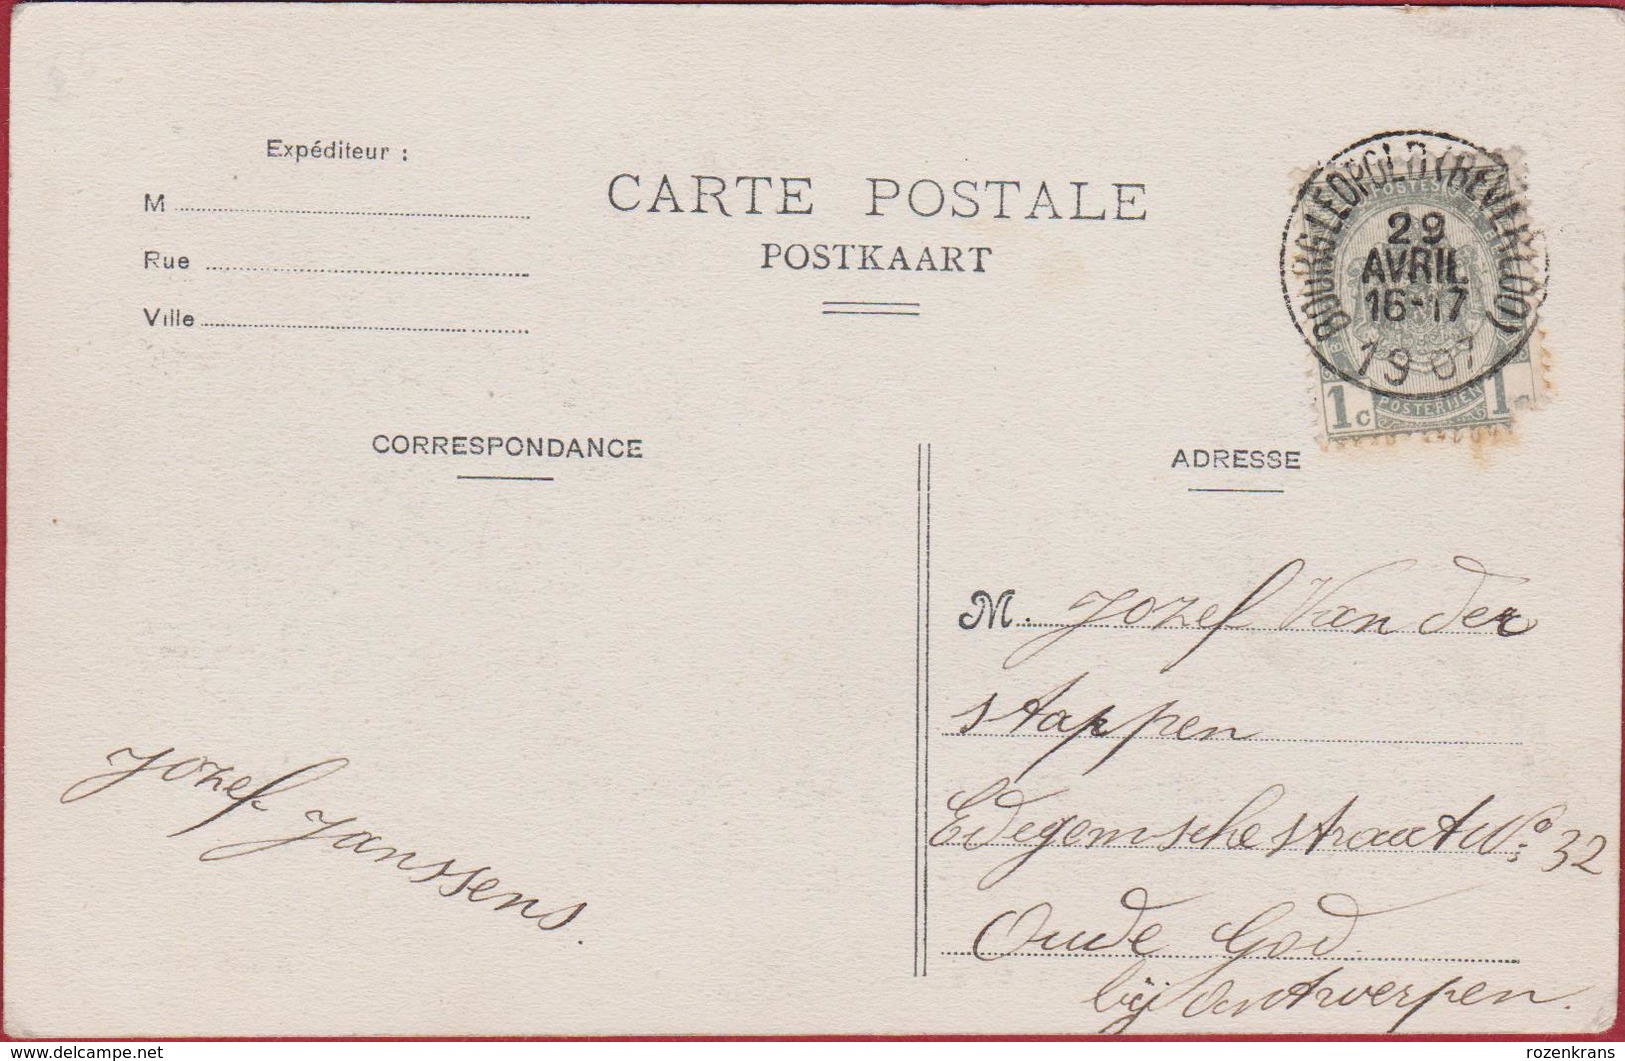 Expéditeur :
M
Rue
Ville
CARTE POSTALE
POSTKAART
BOURG LEOPOLD (BEVERLOO)
29
AVRIL
16-17
1907
1c POSTERIJEN 1c
CORRESPONDANCE
ADRESSE
M. Jozef Van der
stappen
Edegemschestraat No: 32
Oude God
bij Antwerpen.
Jozef Janssens.
delcampe.net
rozenkrans